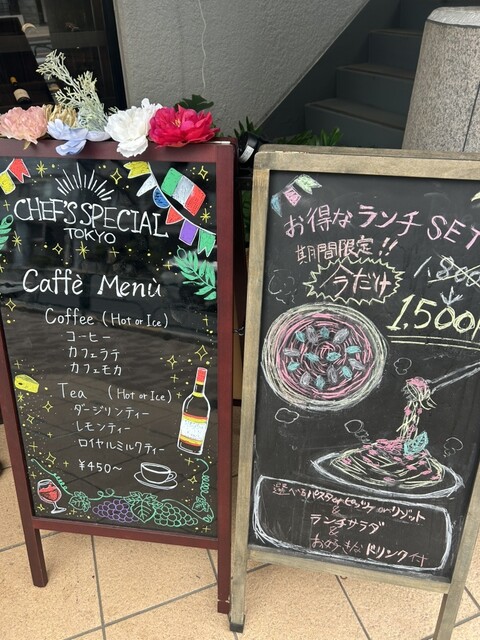 CHEF'S SPECIAL
TOKYO
Caffè Menù
Coffee (Hot or Ice)
コーヒー
カフェラテ
カフェモカ
Tea (Hot or Ice)
ダージリンティー
レモンティー
ロイヤルミルクティー
¥450〜
お得なランチ SET
期間限定!!
今だけ
1,800
1,500
選べるパスタorピッツァorリゾット
&
ランチサラダ
&
お好きなドリンク付